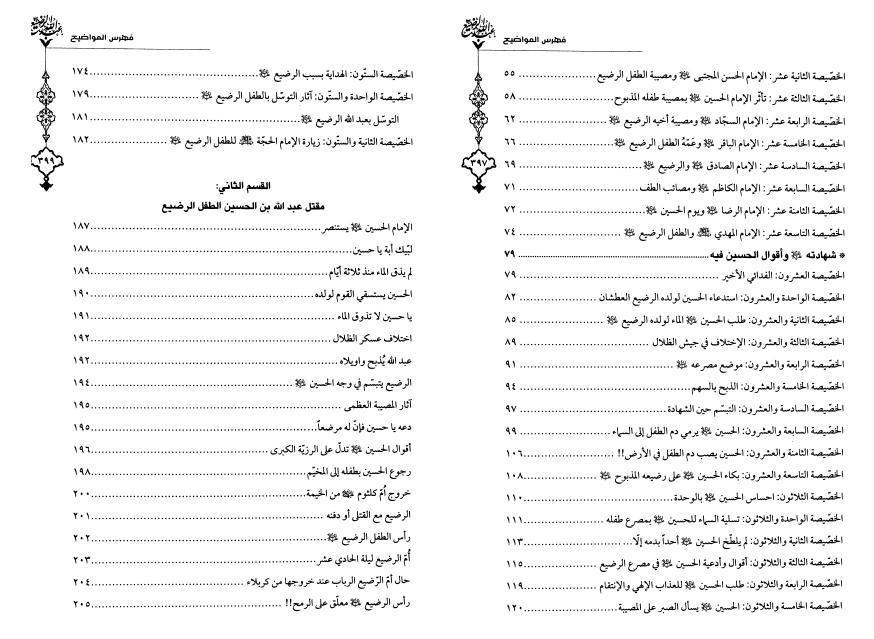 فهرس المواضيع
٣٩٧
الخصّيصة الثانية عشر: الإمام الحسن المجتبى ﷺ ومصيبة الطفل الرضيع ٥٥
الخصّيصة الثالثة عشر: تأثّر الإمام الحسين ﷺ بمصيبة طفله المذبوح ٥٨
الخصّيصة الرابعة عشر: الإمام السجّاد ﷺ ومصيبة أخيه الرضيع ﷺ ٦٢
الخصّيصة الخامسة عشر: الإمام الباقر ﷺ وعَمّهُ الطفل الرضيع ﷺ ٦٦
الخصّيصة السادسة عشر: الإمام الصادق ﷺ والرضيع ﷺ ٦٩
الخصّيصة السابعة عشر: الإمام الكاظم ﷺ ومصائب الطف ٧١
الخصّيصة الثامنة عشر: الإمام الرضا ﷺ ويوم الحسين ﷺ ٧٢
الخصّيصة التاسعة عشر: الإمام المهدي ﷺ والطفل الرضيع ﷺ ٧٤
* شهادته ﷺ وأقوال الحسين فيه ٧٩
الخصّيصة العشرون: الفدائي الأخير ٧٩
الخصّيصة الواحدة والعشرون: استدعاء الحسين لولده الرضيع العطشان ٨٢
الخصّيصة الثانية والعشرون: طلب الحسين ﷺ الماء لولده الرضيع ﷺ ٨٥
الخصّيصة الثالثة والعشرون: الإختلاف في جيش الظلال ٨٩
الخصّيصة الرابعة والعشرون: موضع مصرعه ﷺ ٩١
الخصّيصة الخامسة والعشرون: الذبح بالسهم ٩٤
الخصّيصة السادسة والعشرون: التبسّم حين الشهادة ٩٧
الخصّيصة السابعة والعشرون: الحسين ﷺ يرمي دم الطفل إلى السماء ٩٩
الخصّيصة الثامنة والعشرون: الحسين يصب دم الطفل في الأرض!! ١٠٦
الخصّيصة التاسعة والعشرون: بكاء الحسين ﷺ على رضيعه المذبوح ﷺ ١٠٨
الخصّيصة الثلاثون: احساس الحسين ﷺ بالوحدة ١١٠
الخصّيصة الواحدة والثلاثون: تسلية السماء للحسين ﷺ بمصرع طفله ١١١
الخصّيصة الثانية والثلاثون: لم يلطّخ الحسين ﷺ أحداً بدمه إلّا... ١١٣
الخصّيصة الثالثة والثلاثون: أقوال وأدعية الحسين ﷺ في مصرع الرضيع ١١٥
الخصّيصة الرابعة والثلاثون: طلب الحسين ﷺ للعذاب الإلهي والإنتقام ١١٩
الخصّيصة الخامسة والثلاثون: الحسين ﷺ يسأل الصبر على المصيبة ١٢٠
فهرس المواضيع
٣٩٩
الخصّيصة الستّون: الهداية بسبب الرضيع ﷺ ١٧٤
الخصّيصة الواحدة والستّون: آثار التوسّل بالطفل الرضيع ﷺ ١٧٩
التوسّل بعبد الله الرضيع ﷺ ١٨١
الخصّيصة الثانية والستّون: زيارة الإمام الحجّة ﷺ للطفل الرضيع ﷺ ١٨٢
القسم الثاني:
مقتل عبد الله بن الحسين الطفل الرضيع
الإمام الحسين ﷺ يستنصر ١٨٧
لبّيك أبة يا حسين ١٨٨
لم يذق الماء منذ ثلاثة أيّام ١٨٩
الحسين يستسقي القوم لولده ١٩٠
يا حسين لا تذوق الماء ١٩١
اختلاف عسكر الظلال ١٩٢
عبد الله يُذبح واويلاه ١٩٢
الرضيع يتبسّم في وجه الحسين ﷺ ١٩٤
آثار المصيبة العظمى ١٩٥
دعه يا حسين فإنّ له مرضعاً ١٩٥
أقوال الحسين ﷺ تدلّ على الرزيّة الكبرى ١٩٦
رجوع الحسين بطفله إلى المخيّم ١٩٨
خروج أُمّ كلثوم ﷺ من الخيمة ٢٠٠
الرضيع مع القتلى أو دفنه ٢٠١
رأس الطفل الرضيع ﷺ ٢٠٢
أُمّ الرضيع ليلة الحادي عشر ٢٠٣
حال أمّ الرّضيع الرباب عند خروجها من كربلاء ٢٠٤
رأس الرضيع ﷺ معلّق على الرمح!! ٢٠٥